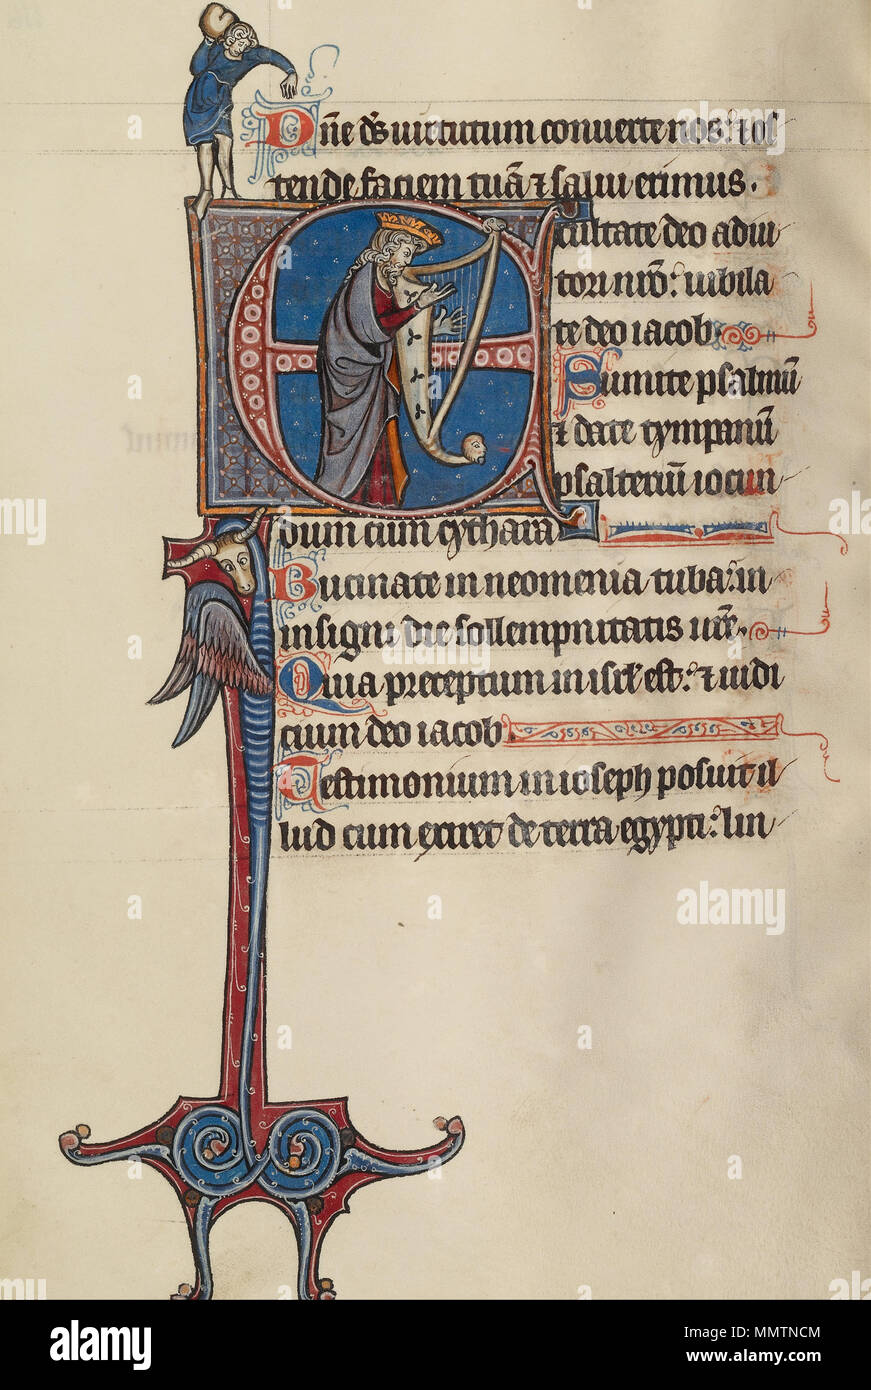 Dn̄e ds̄ uirtutum conuerte nos: ⁊ os
tende faciem tuā ⁊ salui erimus.
Exultate deo adiu
tori nr̄o: iubila
te deo iacob.
Sumite psalmū
⁊ date tympanū
psalteriū iocun
dum cum cythara
Bucinate in neomenia tuba: in
insigni die sollempnitatis ur̄e.
Quia preceptum in isrl̄ est: ⁊ iudi
cium deo iacob.
Testimonium in ioseph posuit il
lud cum exiret de terra egypti: lin
alamy
Image ID: MMTNCM
www.alamy.com